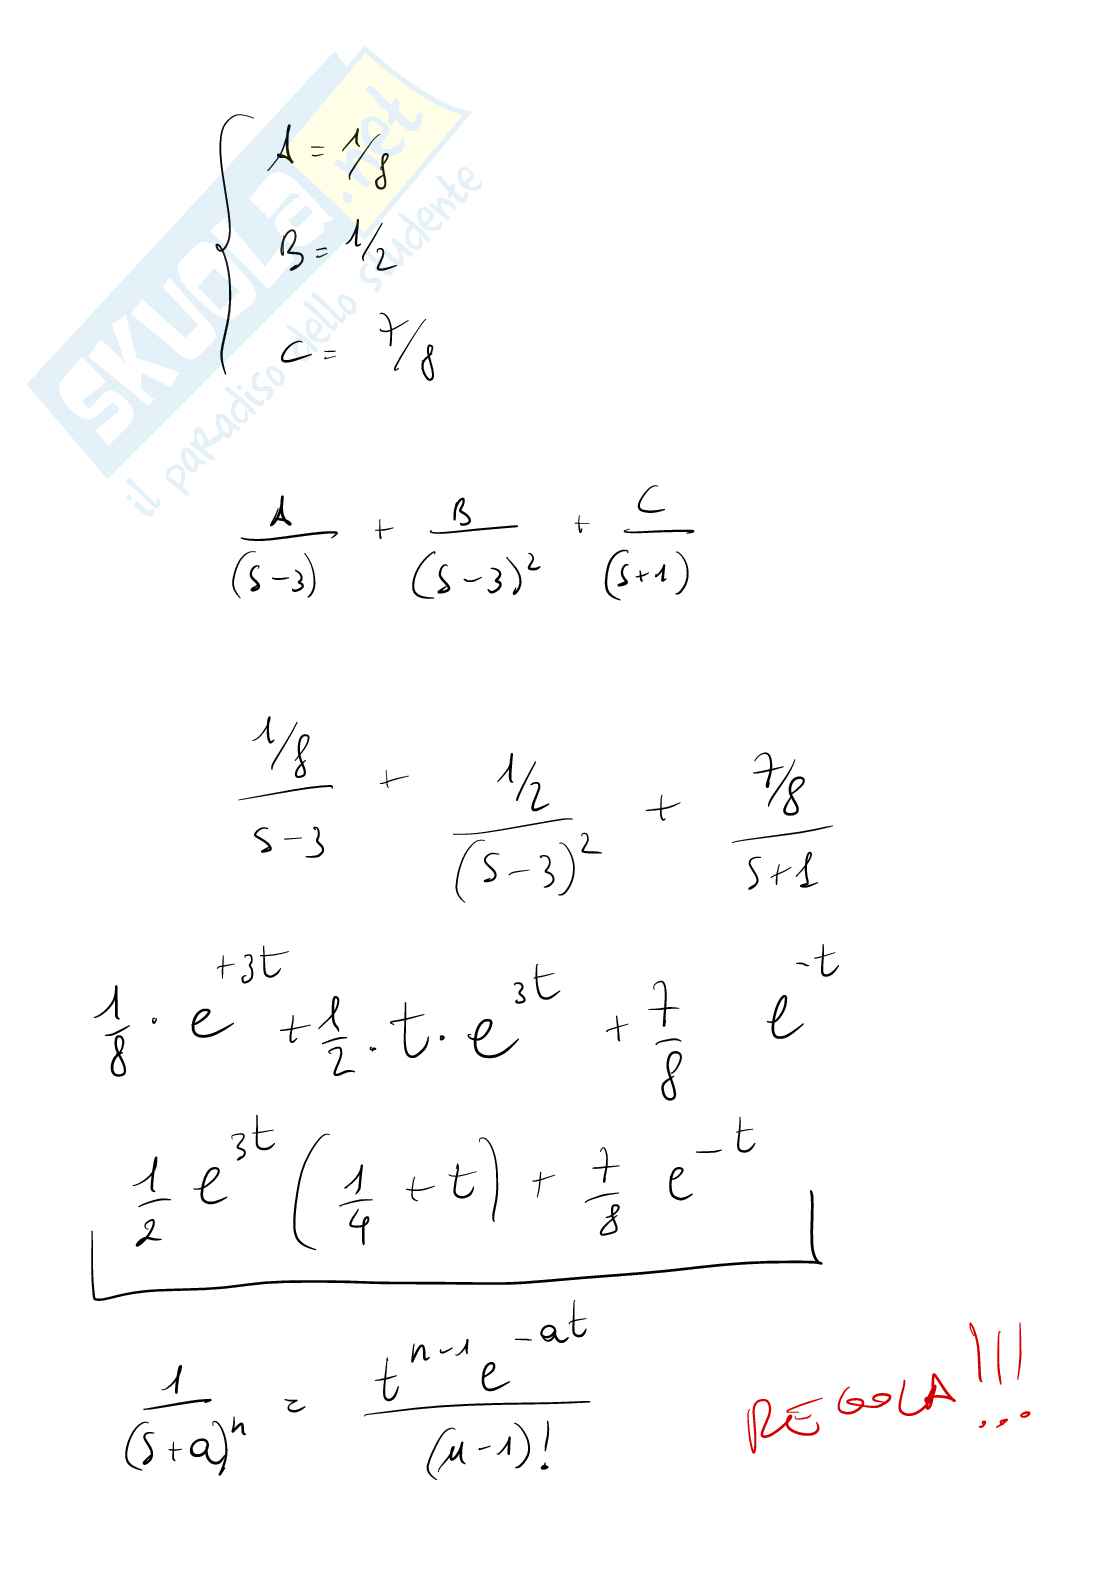 SKUOLA.net
il paradiso dello studente
A = 1/8
B = 1/2
C = 7/8
A/(s-3) + B/(s-3)² + C/(s+1)
1/8/(s-3) + 1/2/(s-3)² + 7/8/(s+1)
1/8 · e^{+3t} + 1/2 · t · e^{3t} + 7/8 e^{-t}
1/2 e^{3t} (1/4 + t) + 7/8 e^{-t}
1/(s+a)^n = t^{n-1} e^{-at}/(n-1)! REGOLA!!!...